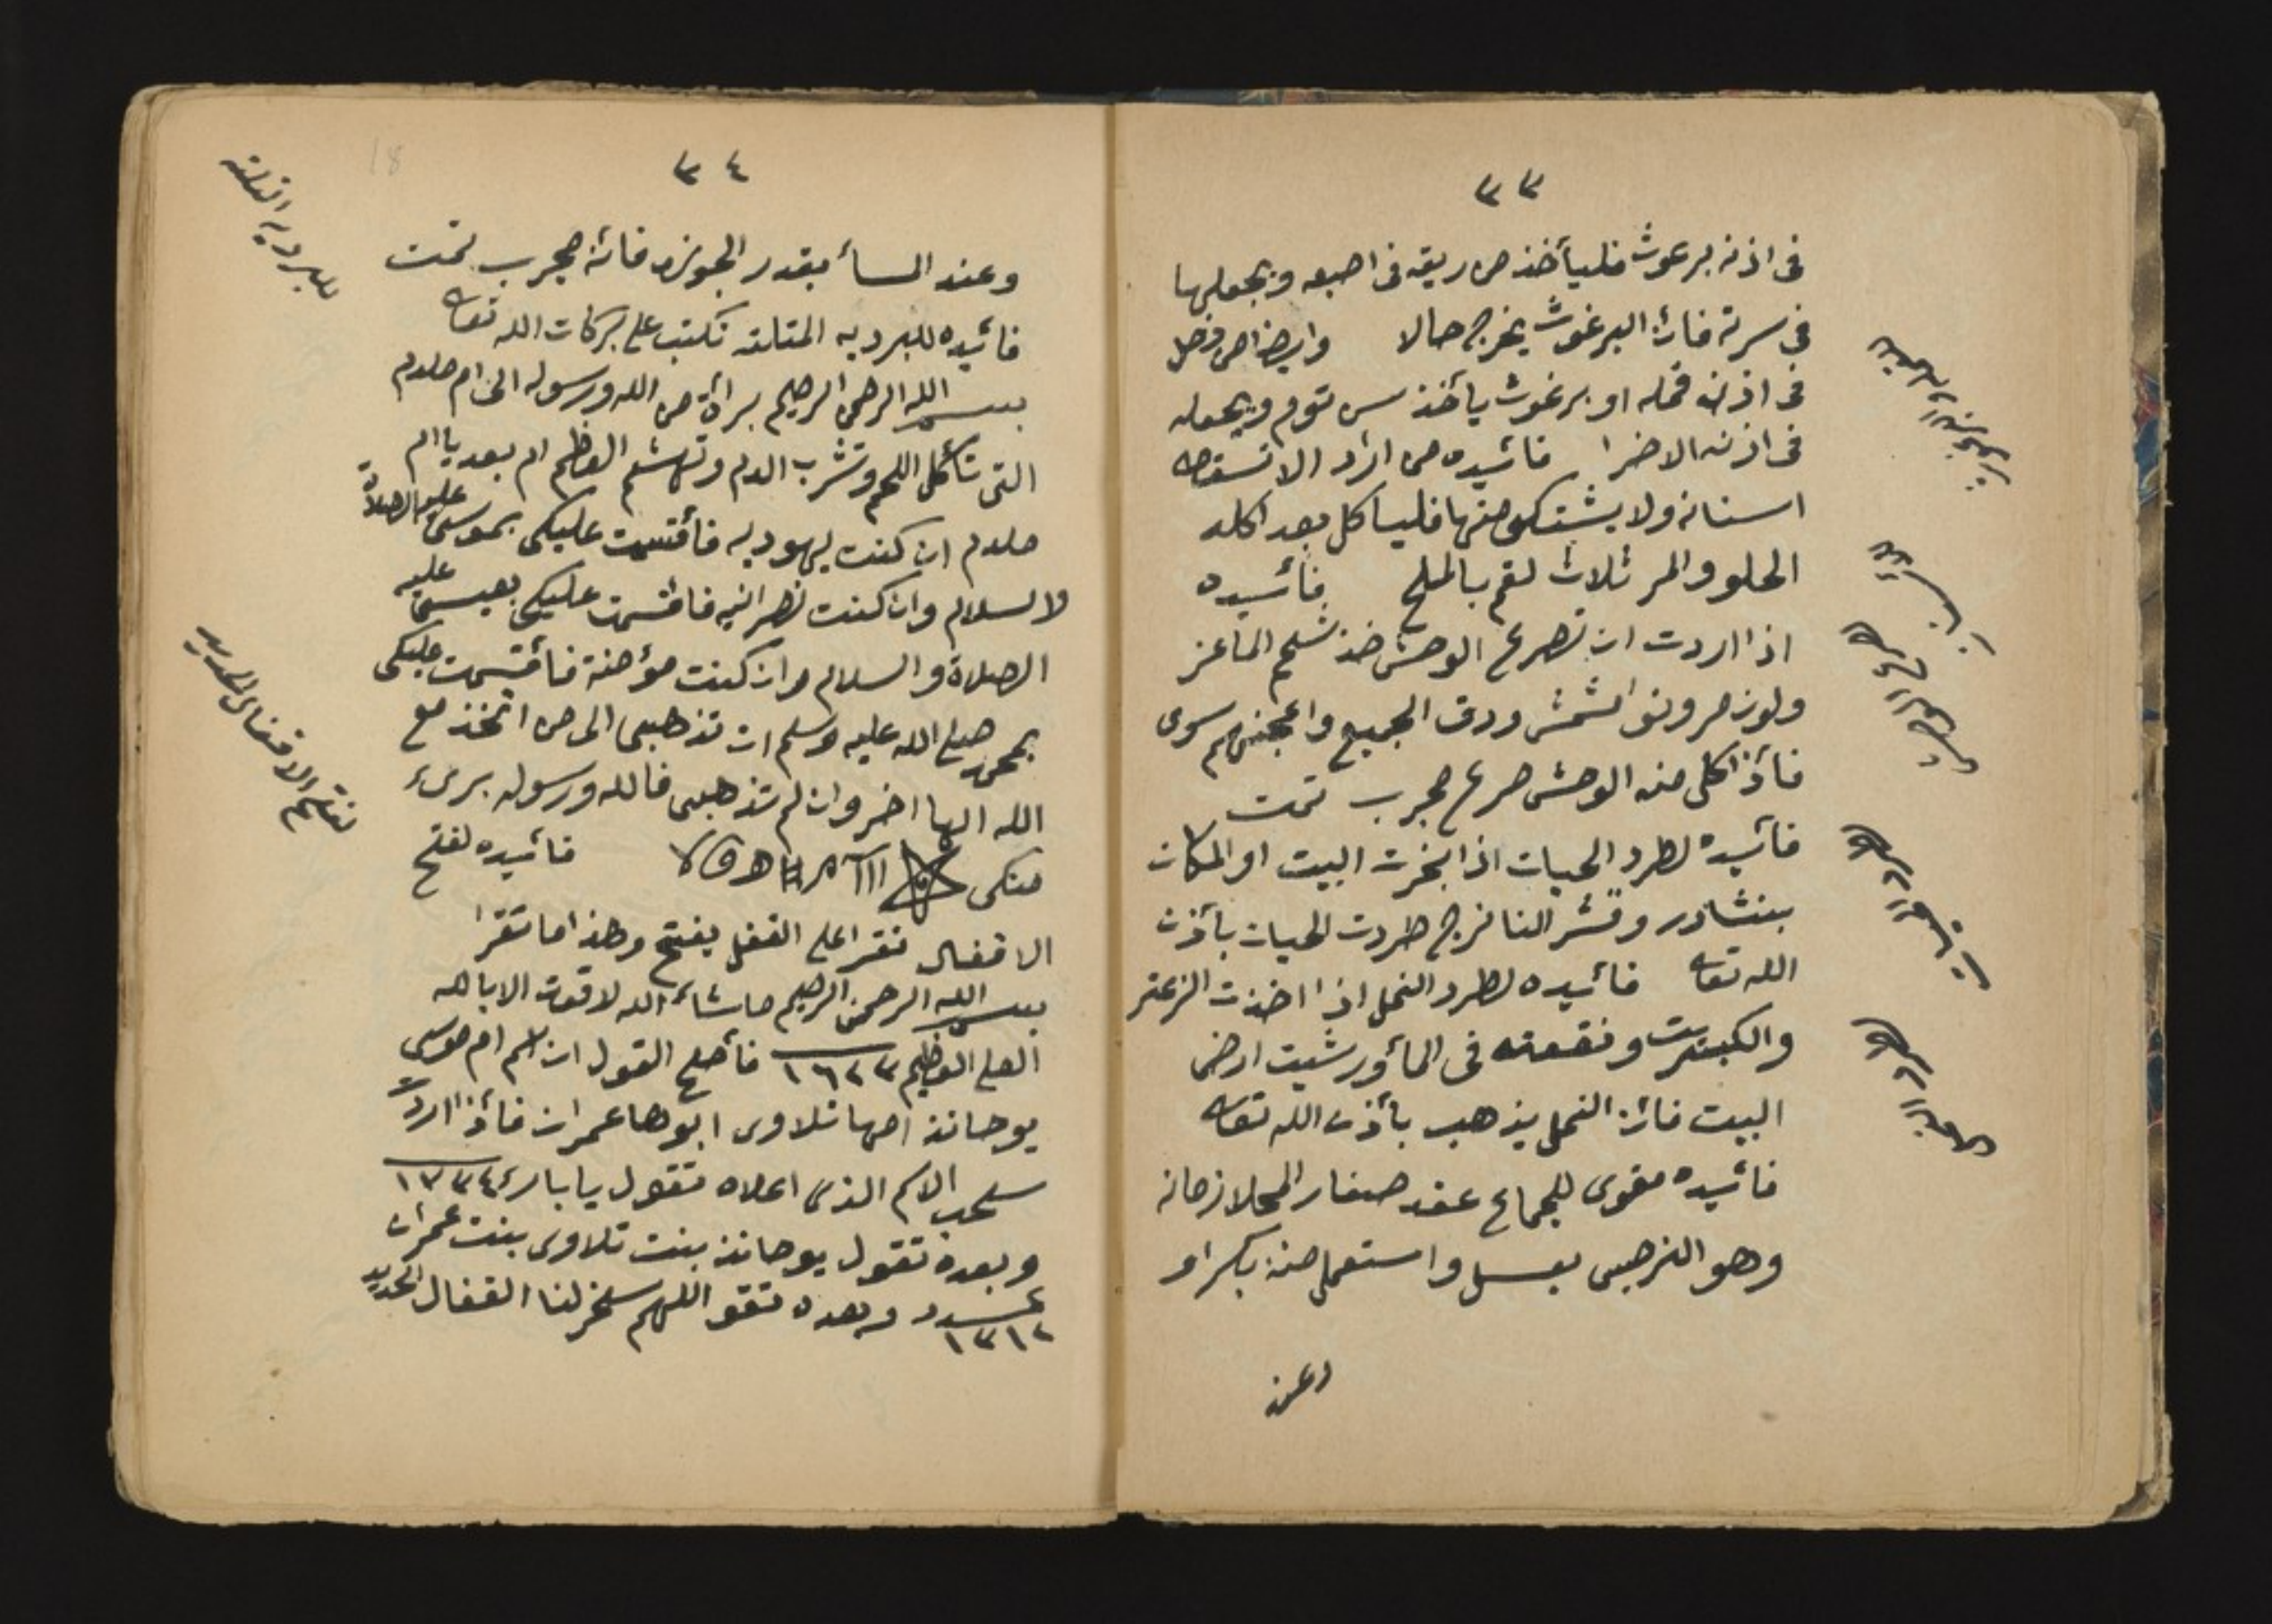 ٣٣
فى اذنه برغوث فليأخذ من ريقه فى اصبعه ويجعلها
فى سرته فائن البرغوث يخرج حالا وايضا من دخل
فى اذنه قمله او برغوث يأخذ سن توم ويجعله
فى اذنه الاخرا فائيده من اراد الا تسقط
اسنانه ولا يشتكى منها فليأكل بعد اكله
الحلو والمر ثلاث لقم بالملح فائيده
اذا اردت ان تصرع الوحش خذ شحم الماعز
ولوز مر ونوا المشمش ودق الجميع واعجنهم سوى
فأذا اكل منه الوحش صرع مجرب تمت
فائيده لطرد الحيات اذا بخرت البيت او المكان
بنشادر وقشر النانرج طردت الحيات بأذن
الله تعا فائيده لطرد النمل اذا اخذت الزعتر
والكبريت ونقعته فى المأ ورشيت ارض
البيت فائن النمل يذهب بأذن الله تعا
فائيده مقوى للجماع عقد صفار المحلا زمانه
وهو النرجس بعسل واستعمل منه بكرا و
وعن
٣٤
وعند المسأ بقدر الجوزه فائنه مجرب تمت
فائيده للبرديه المتلته تكتب على بركات الله تعا
بسم الله الرحمن الرحيم برأة من الله ورسوله الى ام ملدم
التى تأكل اللحم وتشرب الدم وتهشم العظم ام بعد يا ام
ملدم ان كنت يهوديه فأقسمت عليكى بموسى عليه الصلاة
والسلام وان كنت نصرانيه فاقسمت عليكى بعيسى عليه
الصلاة والسلام وان كنت مؤمنة فأقسمت عليكى
بمحمد صلى الله عليه وسلم ان تذهبى الى من اتخذ مع
الله الها اخر وان لم تذهبى فالله ورسوله برىء
منكى فائيده لفتح
الاقفال تقرا على القفل يفتح وهذا ما تقرا
بسم الله الرحمن الرحيم ماشاء الله لا قوت الا بالله
العلى العظيم ١٦٢٣ فأصلح القول ان اسم ام موسى
يوحانذ امها تلاوى ابوها عمران فأذا اردت
سحب الاسم الذى اعلاه تقول يا بارئ ١٧٣٤
وبعده تقول يوحانذ بنت تلاوى بنت عمران
عدد ١٣١٢ وبعده تقو اللهم سخر لنا القفال الحديد
للبرديه التلته
لفتح الاقفال الحديد